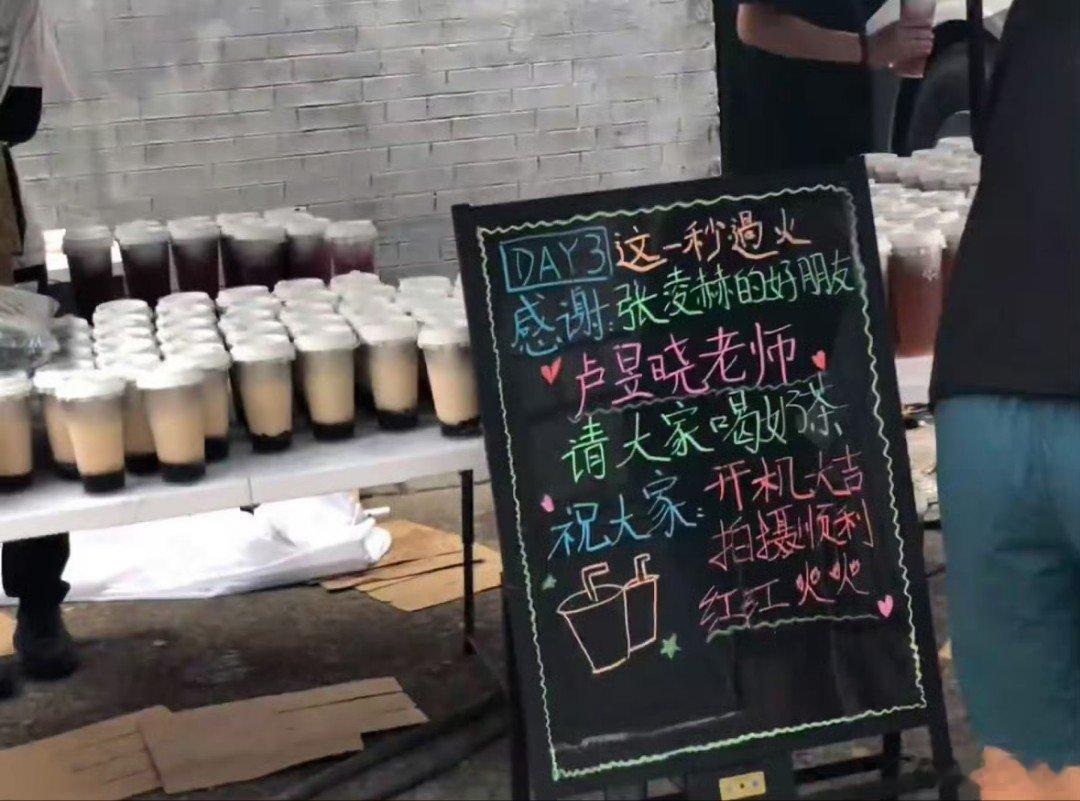 DAY3 这一秒過火
感谢:张凌赫的好朋友
卢昱晓老师
请大家喝奶茶
祝大家: 开机大吉
拍摄顺利
红红火火